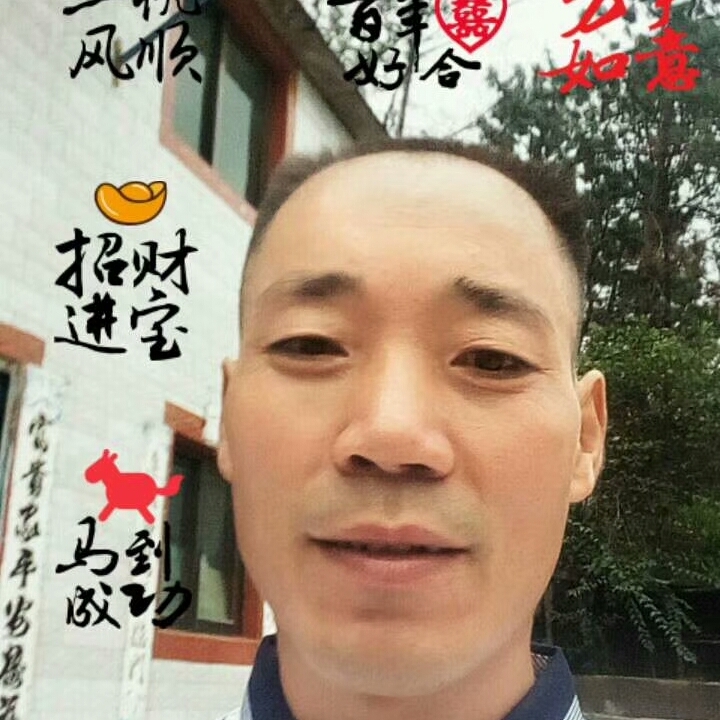 一帆
风顺
百年
好合
囍
万事
如意
招财
进宝
马到
成功
富贵
平安